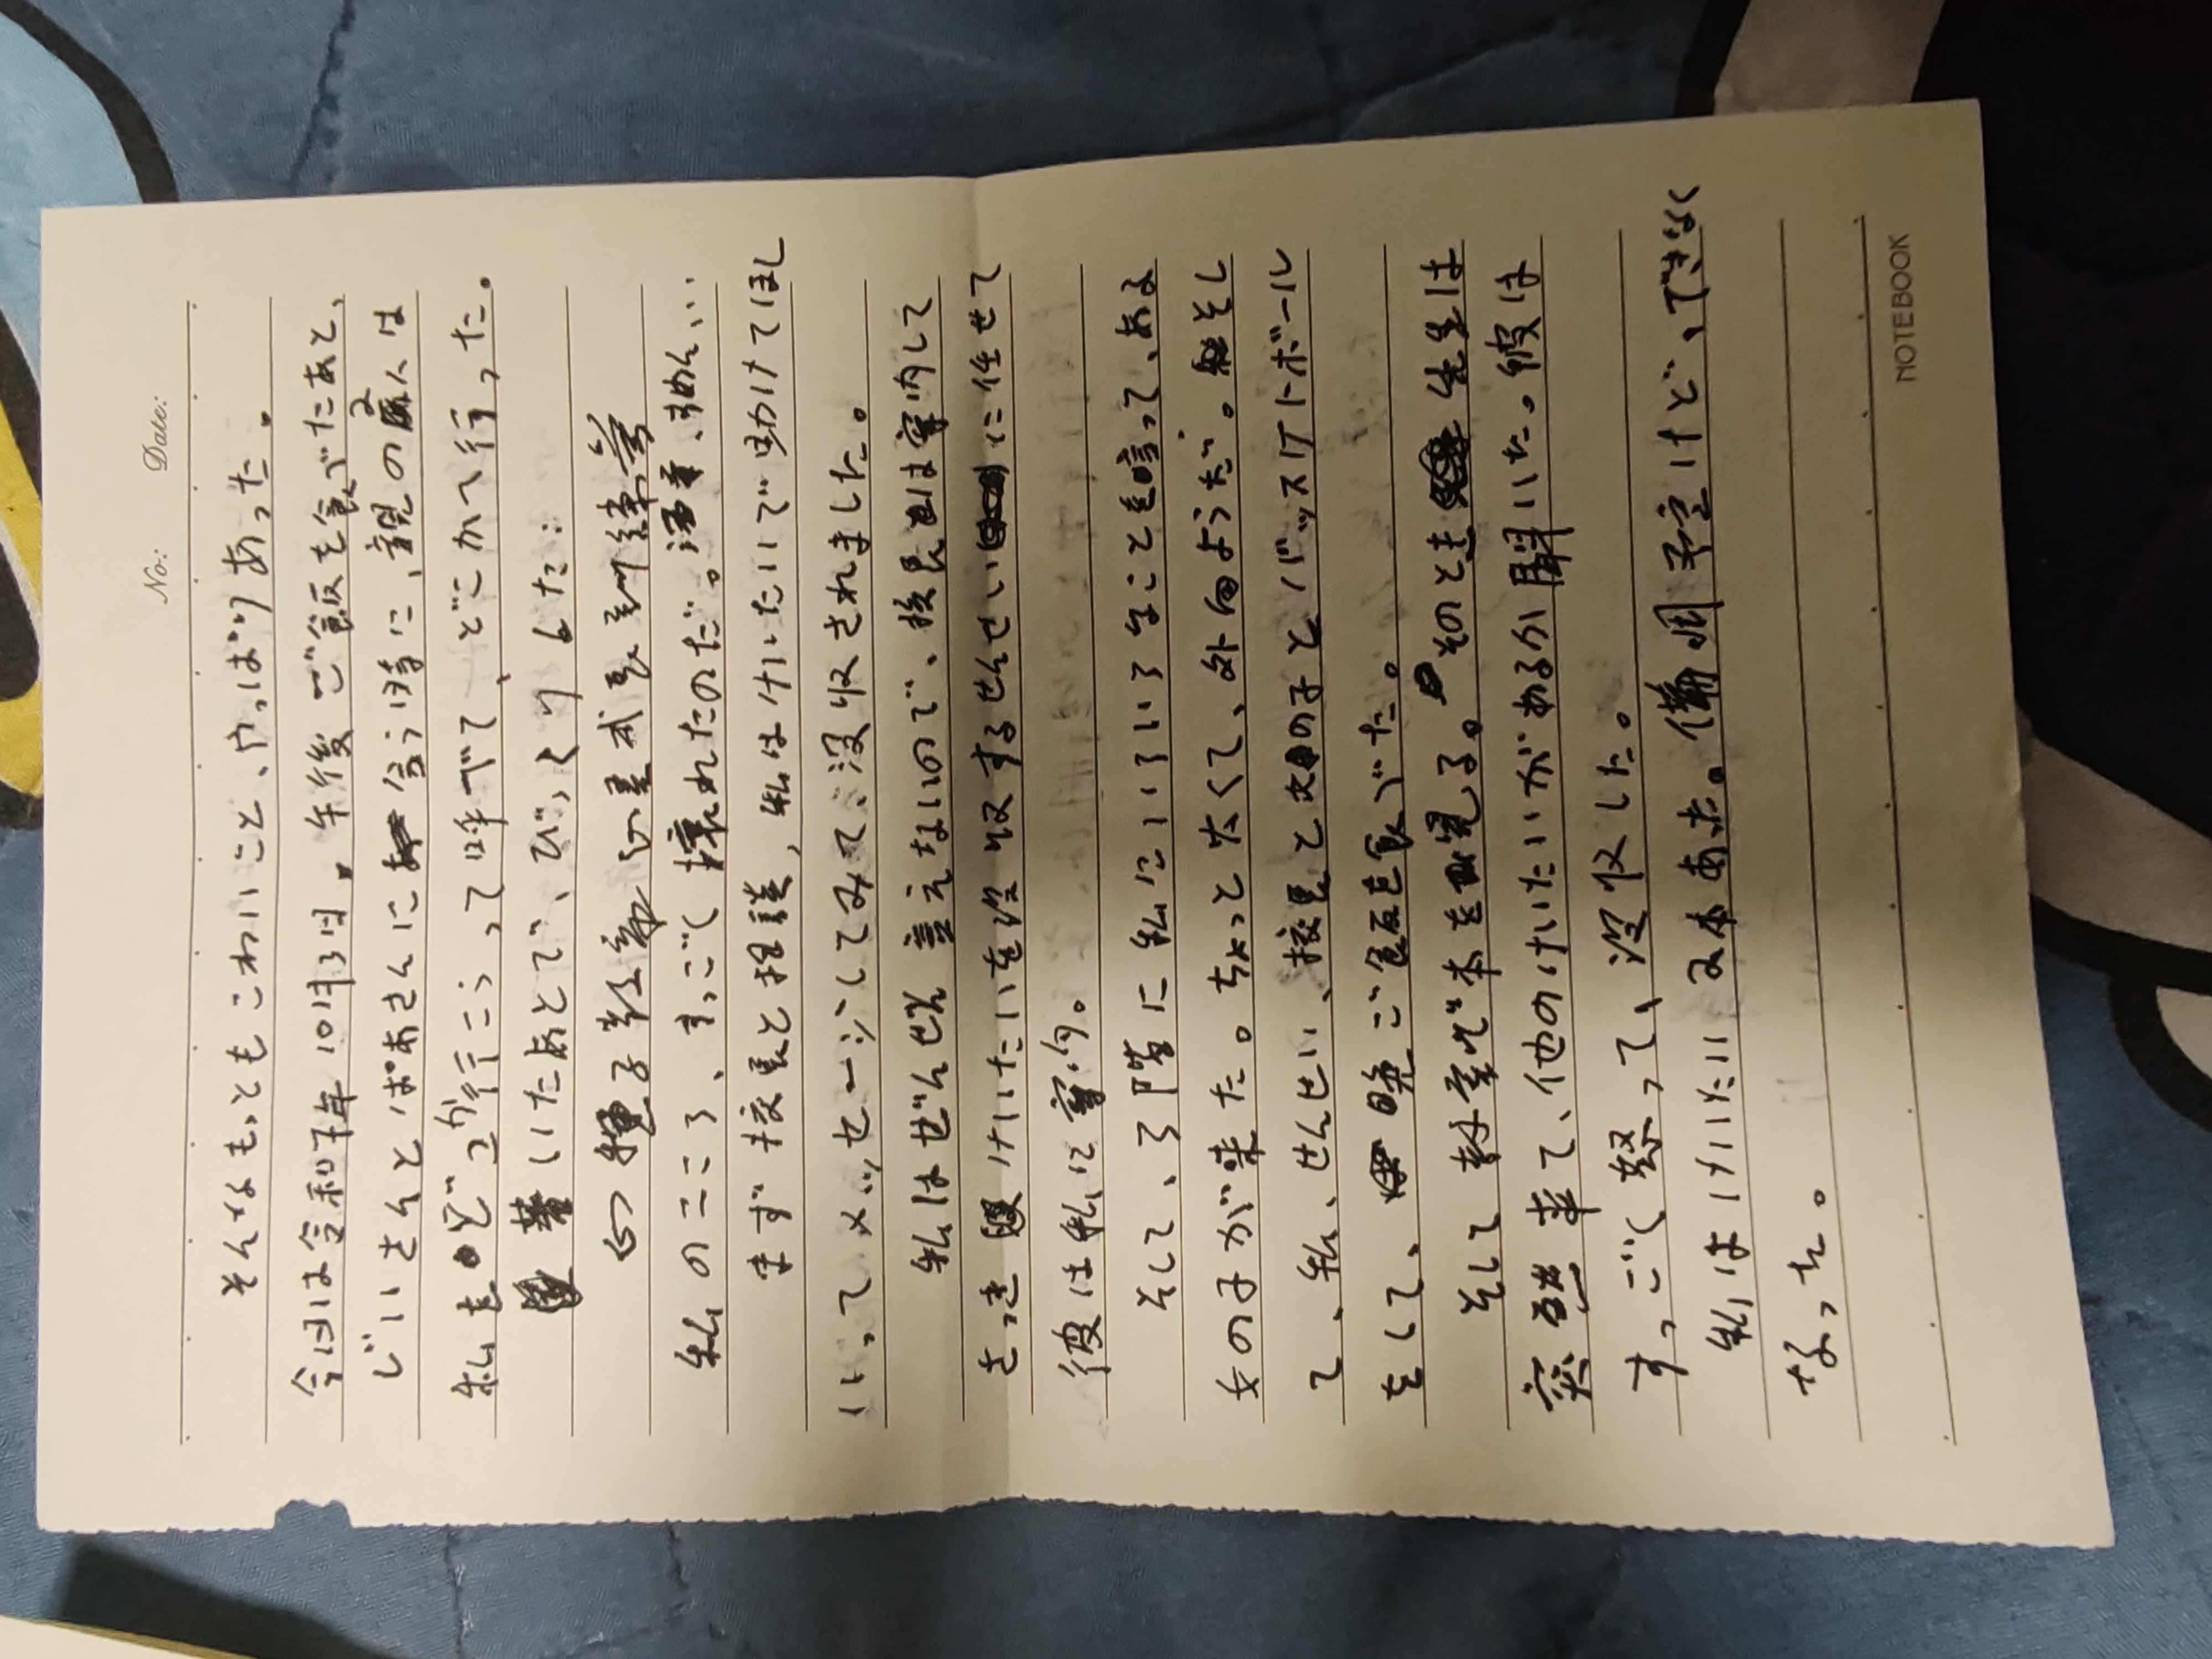 No:      Date:
そんなもっともこわいこと、やっぱりあった。
今日は令和7年10月3日。午後ご飯を食べたあと、
じいさんとばあさんに会う時に、親の2人は
私をどっか行こうって呼べて、どこかへ行った。
着いたあとで、びっくりした:
心種子教育心星式長訓練営
私のこころ、すっごく壊れたのだ。
まず校長と相談、私はけいたいで助けてほし
いってメッセージしてみて、没収されました。
私はぜんぜん言えないので、校長は案内して
さっきけいたいを没収するせんせいに任せて
彼は私に案内。
そして、3階に私にいろいろなことを言って、ある
女の子が来た。ちょっと太くて、外向ようだ。そし
て、私、せんせい、校長と女の子とバッスケトボール
をして、晩ご飯を食べた。
そして教室で本を見る。そのとき先生は
突然来て、他のけいたいがあるか聞いた。彼は
すっごく怒って、没収した。
私はけいたい2本あホ。備用予定けど、できなく
なっち。
NOTEBOOK